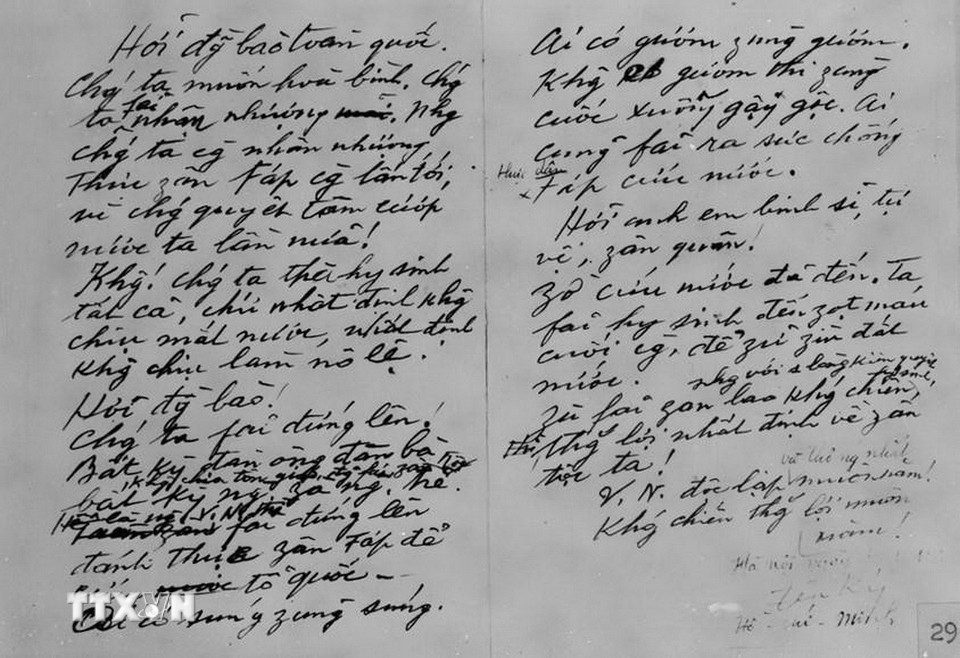 Hỡi đg̃ bào toàn quốc.
Chg' ta muốn hoà bình, chg'
ta fải nhân nhượng. Nhg
chg' ta cg̀ nhân nhượng
Thực zân Fáp cg̀ lấn tới,
vì chg' quyết tâm cướp
nước ta lần nữa!
Khg! chg' ta thà hy sinh
tất cả, chứ nhất định khg
chịu mất nước, nhất định
khg chịu làm nô lệ.
Hỡi đg̀ bào!
Chg' ta fải đứng lên!
Bất kỳ đàn ông đàn bà
bất kỳ ng. zà ng. trẻ.
khg chia tôn giáo, đ̉g fái, zân tộc
Hễ là ng. V.N. thì
fải đứng lên
đánh thực zân Fáp để
cứu tổ quốc —
Ai có súng zùng súng.
TTXVN
Ai có gươm zùng gươm,
Khg có gươm thì zùng
cuốc xuổng gậy gộc. Ai
cũng fải ra sức chống
thực dân
Fáp cứu nước.
Hỡi anh em binh sĩ, tự
vệ, zân quân!
Zờ cứu nước đã đến. Ta
fải hy sinh đến zọt máu
cuối cg̀, để zữ zìn đất
nước.
nhg với 1 lòng kiên quyết
hy sinh,
Zù fải zan lao khg' chiến,
thì thg' lợi nhất định về zân
tộc ta!
và thống nhất
V.N. độc lập muôn năm!
Khg' chiến thg' lợi muôn
năm!
Hà nội ngày
Hồ - chí - Minh
29